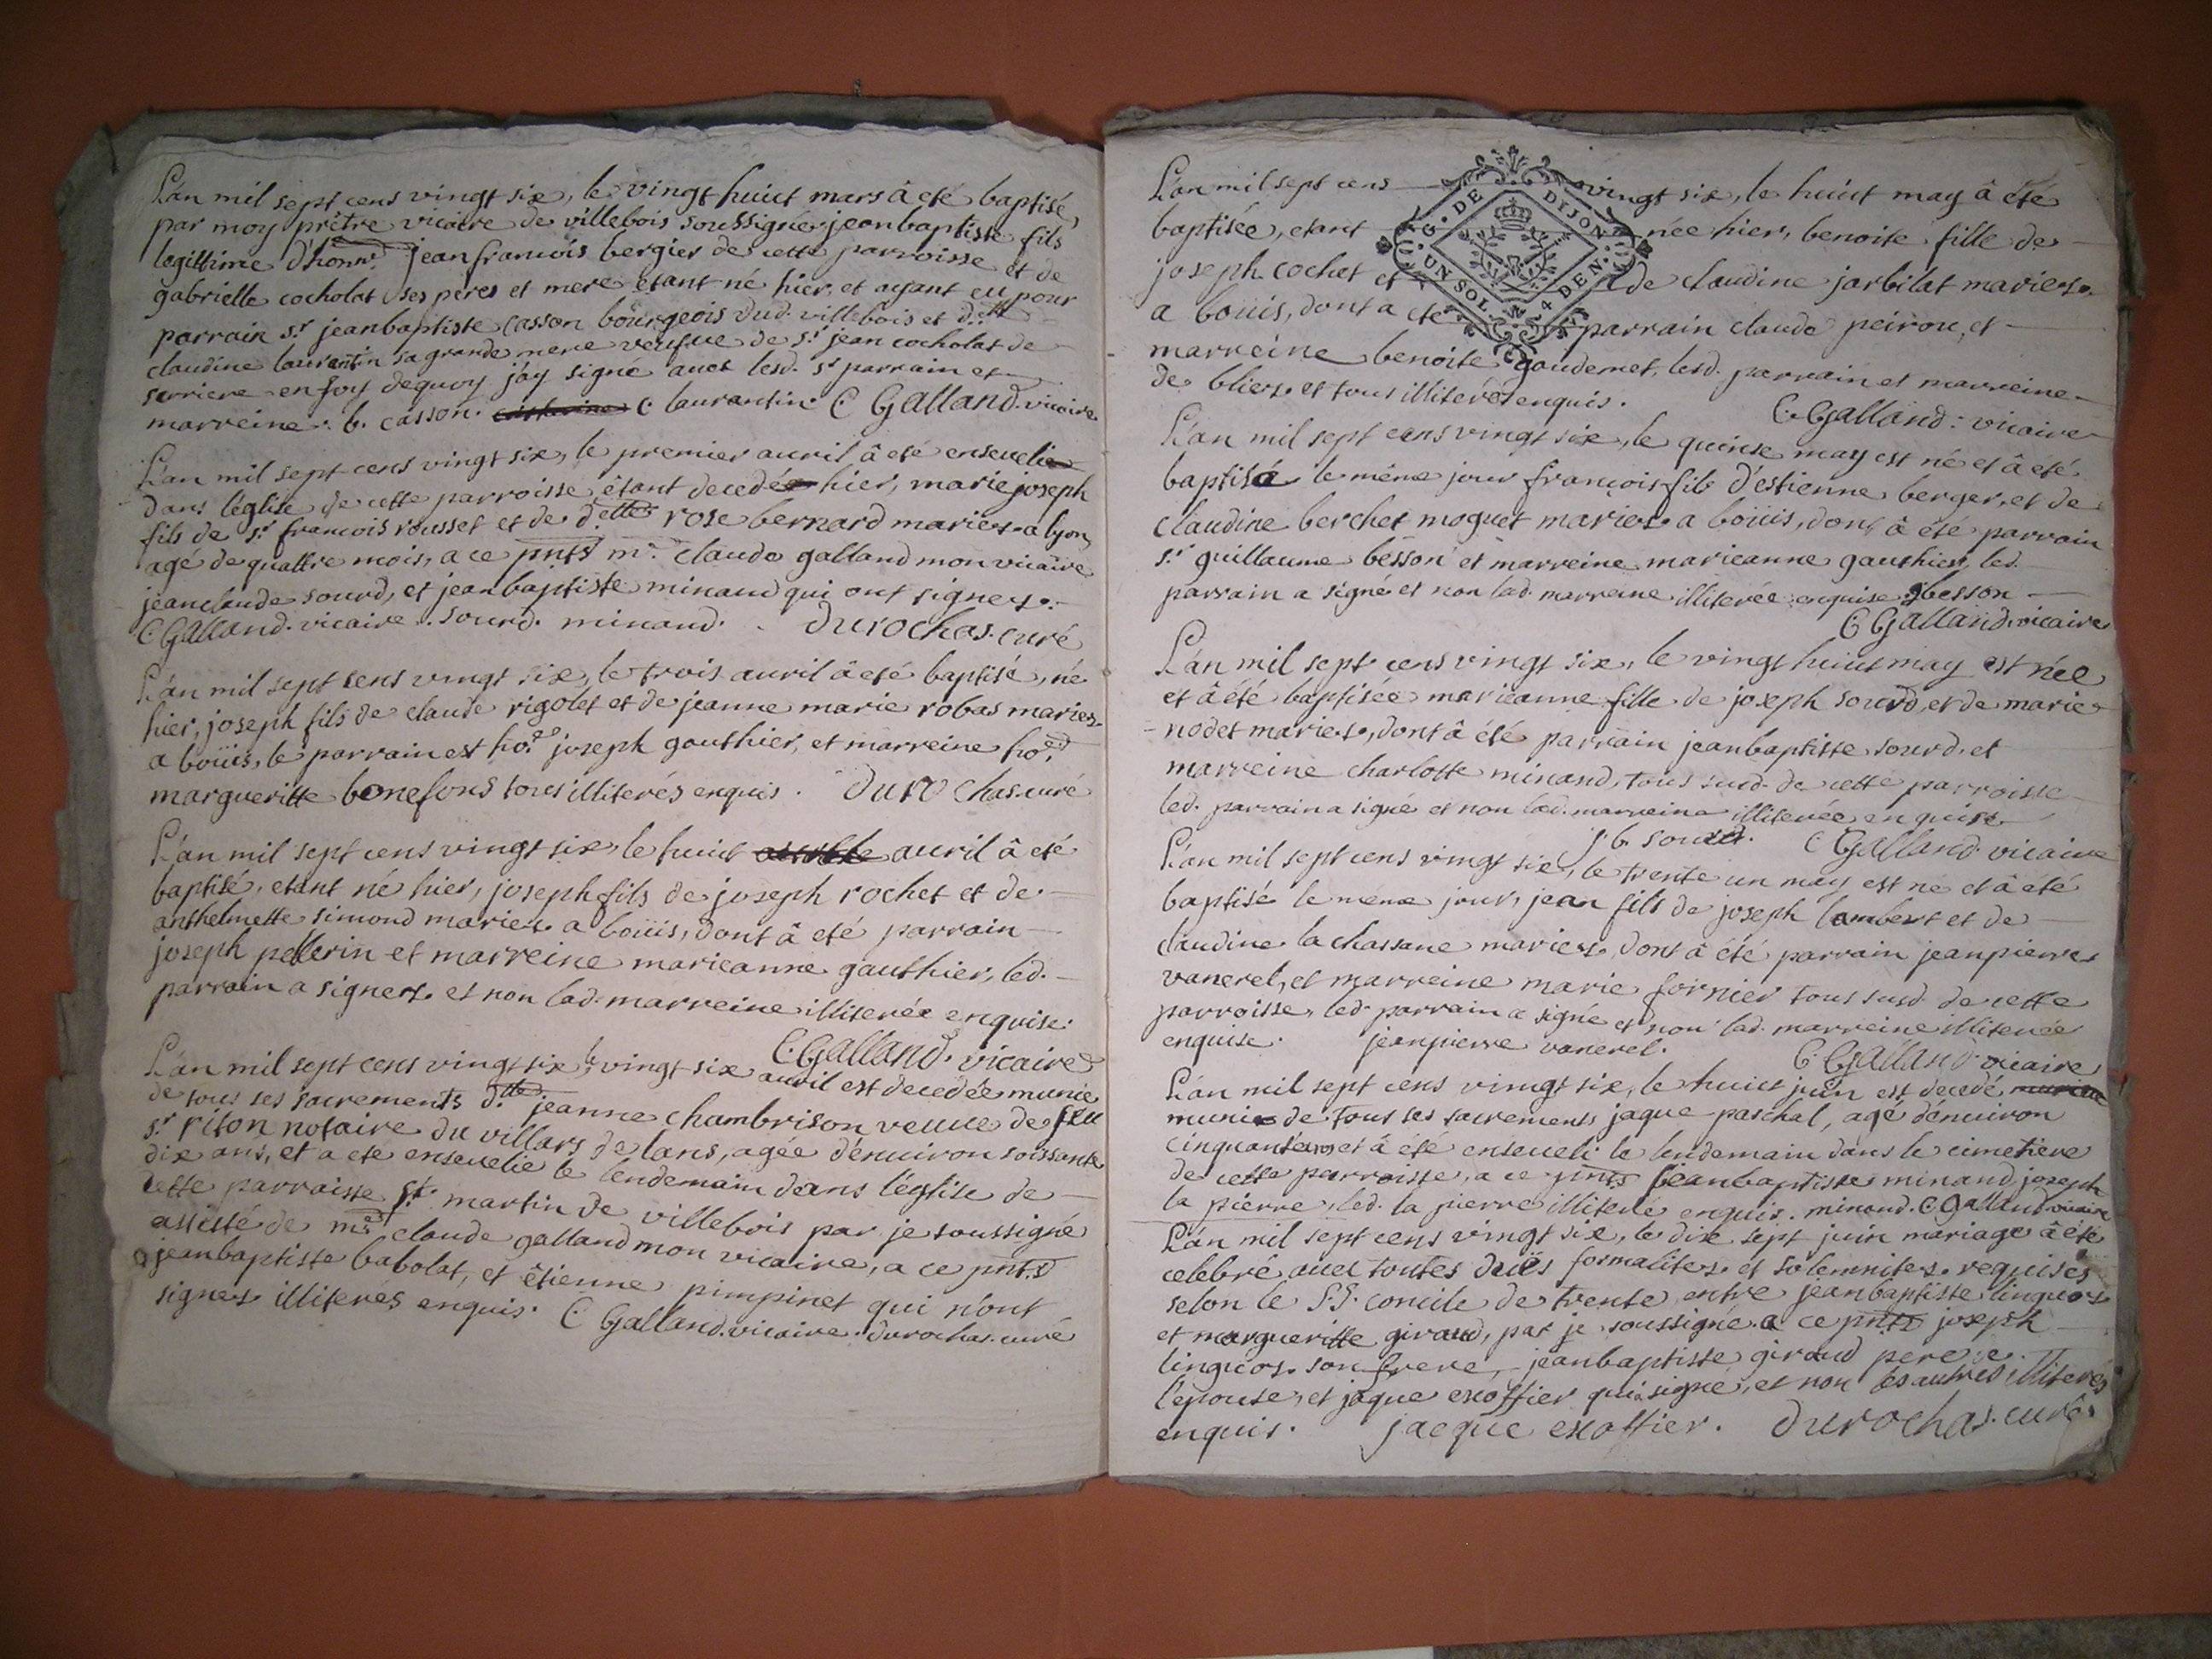 L'an mil sept cens vingt six, le vingt huict mars â eté baptisé,
par moy prêtre vicaire de villebois soussigné jean baptiste fils
legittime d'honn.e jean francois bergier de cette parroisse et de
gabrielle cocholat ses peres et mere étant né hier, et ayant eu pour
parrain s.r jean baptiste casson bourgeois dud. villebois et d.elle
claudine laurantin sa grande mere veufve de s.r jean cocholat de
serriere en foy dequoy j'ay signé avec lesd. s.r parrain et
marreine. b. casson. c laurantin. C Galland. vicaire
L'an mil sept cens vingt six, le premier avril â eté enseveli
dans l'église de cette parroisse, étant decedé hier, marie joseph
fils de s.r francois rousset et de d.elle rose bernard mariés a lyon,
agé de quattre mois, a ce pnts m.r claude galland mon vicaire
jean claude sourd, et jean baptiste minaud qui ont signez.
C Galland. vicaire. sourd. minaud. durochas. curé
L'an mil sept cens vingt six, le trois avril â eté baptisé, né
hier, joseph fils de claude rigolet et de jeanne marie robas mariez
a boüis, le parrain est ho.e joseph gauthier, et marreine ho.e
margueritte bonefons tous illiterés enquis. durochas. curé
L'an mil sept cens vingt six le huict avril â eté
baptisé, etant né hier, joseph fils de joseph rochet et de
anthelmette simond mariez a boüis, dont â eté parrain
joseph pellerin et marreine marieanne gauthier, led.
parrain a signez et non lad. marreine illiterée enquise.
C. Galland. vicaire
L'an mil sept cens vingt six le vingt six avril est decedée munie
de tous ses sacrements d.lle jeanne chambrison veuve de feu
s.r riton notaire du villars de lans, agée d'environ soissante
dix ans, et a eté ensevelie le lendemain dans l'église de
cette parroisse st martin de villebois par je soussigné
assisté de m.re claude galland mon vicaire, a ce pnts
jean baptiste babolat, et êtienne pimpinet qui n'ont
signez illiterés enquis. C Galland. vicaire. durochas. curé
L'an mil sept cens vingt six, le huict may â été
G. DE DIJON
UN SOL 4 DEN.
baptisée, etant née hier, benoite fille de
joseph cochet et de claudine jarbilat mariez
a boüis, dont a eté parrain claude peirou, et
marreine benoite goudemet, lesd. parrain et marreine
de bliez et tous illiterés enquis.
C. Galland: vicaire
L'an mil sept cens vingt six, le quinse may est né et â été
baptisé le même jour francois fils d'estienne berger, et de
claudine berchet moquet mariez a boüis, dont â été parrain
s.r guillaume besson et marreine marieanne gauthier, led.
parrain a signé et non lad. marreine illiterée enquise. gbesson
C Galland. vicaire
L'an mil sept cens vingt six, le vingt huict may est née
et â été baptisée marieanne fille de joseph sourd, et de marie
nodet mariez, dont â été parrain jean baptiste sourd, et
marreine charlotte minand, tous susd. de cette parroisse
led. parrain a signé et non lad. marreine illiterée enquise
J. b. sourd. C Galland. vicaire
L'an mil sept cens vingt six, le trente un may est né et â été
baptisé le même jour, jean fils de joseph lambert et de
claudine la chassane mariez, dont â été parrain jean pierre
vanerel, et marreine marie fornier tous susd. de cette
parroisse, led. parrain a signé et non lad. marreine illiterée
enquise. jeanpierre vanerel. C. Galland vicaire
L'an mil sept cens vingt six, le huict juin est decedé,
muni de tous ses sacrements jaque paschal, agé d'environ
cinquante ans et â été enseveli le lendemain dans le cimetiere
de cette parroisse, a ce pnts jean baptiste minand, joseph
la pierre, led. la pierre illiteré enquis. minand. C Galland vicaire
L'an mil sept cens vingt six, le dix sept juin mariage â été
celebré avec toutes duës formalitez et solemnitez requises
selon le SS. concile de trente, entre jean baptiste linguoz
et margueritte giraud, par je soussigné a ce pnts joseph
linguoz son frere, jean baptiste giraud pere de
l'epouse, et jaque exoffier qui a signé, et non les autres illiterés
enquis. jacque exoffier. durochas. curé